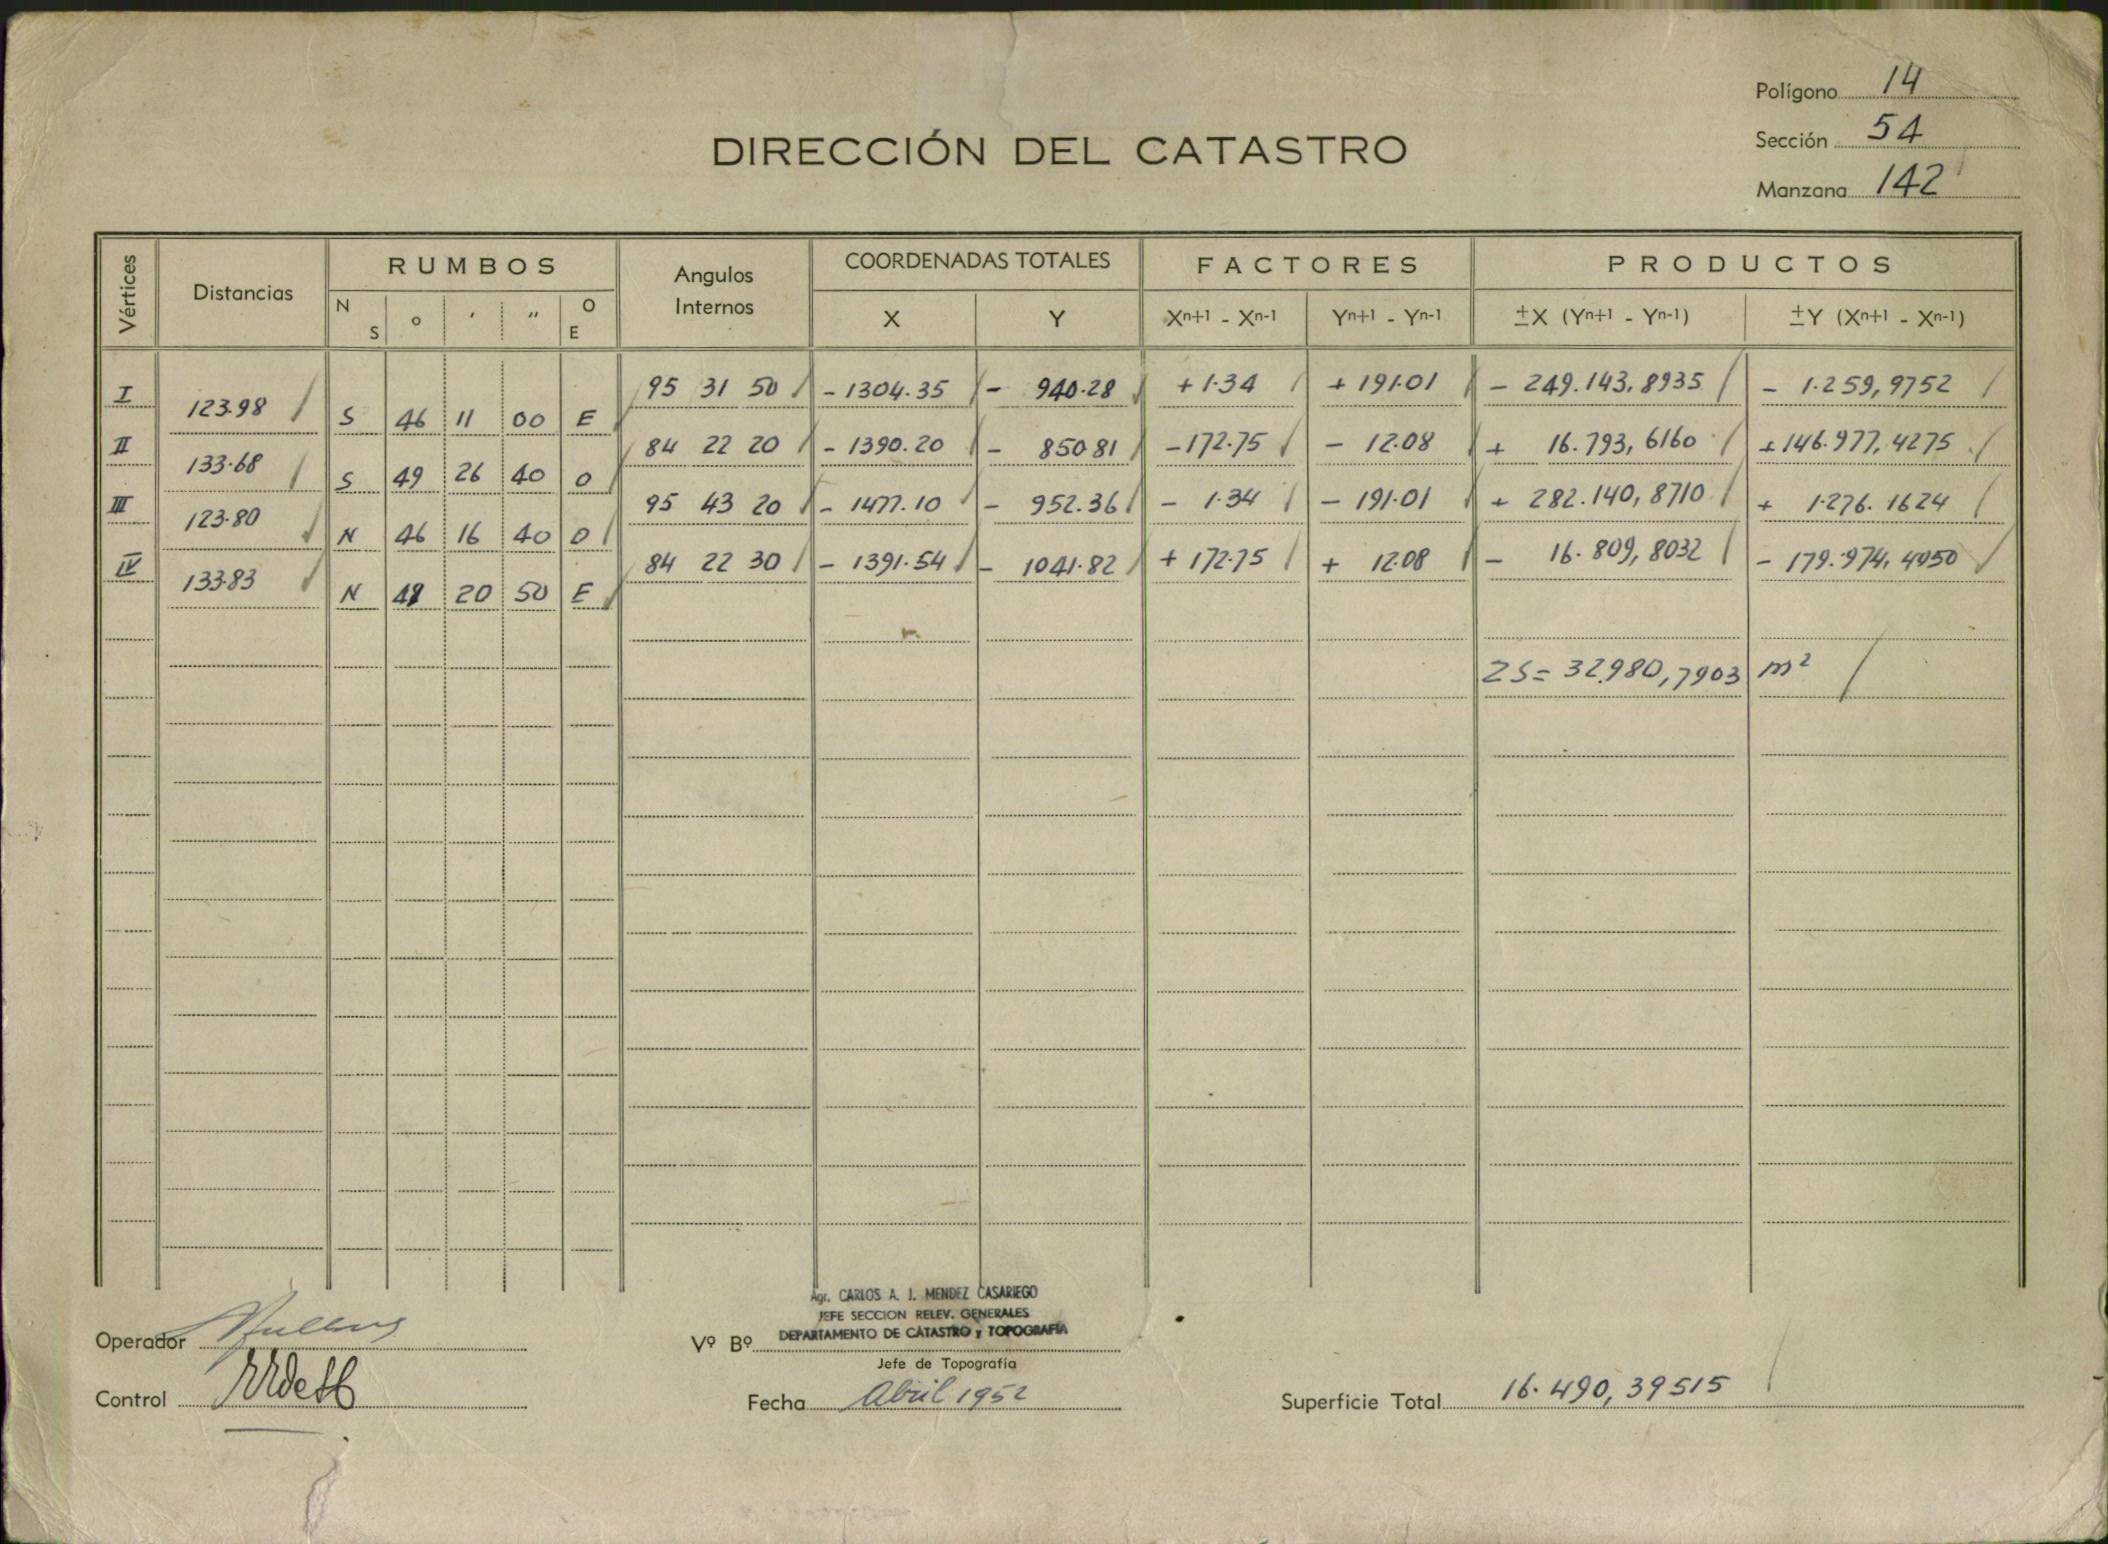 Polígono 14
Sección 54
Manzana 142
DIRECCIÓN DEL CATASTRO
Vértices Distancias RUMBOS Angulos Internos COORDENADAS TOTALES FACTORES PRODUCTOS
N S ° ' " O E X Y Xn+1 - Xn-1 Yn+1 - Yn-1 ±X (Yn+1 - Yn-1) ±Y (Xn+1 - Xn-1)
I 95 31 50 - 1304.35 - 940.28 + 1.34 + 191.01 - 249.143,8935 - 1.259,9752
123.98 S 46 11 00 E
II 84 22 20 - 1390.20 - 850.81 - 172.75 - 12.08 + 16.793,6160 + 146.977,4275
133.68 S 49 26 40 O
III 95 43 20 - 1477.10 - 952.36 - 1.34 - 191.01 + 282.140,8710 + 1.276.1624
123.80 N 46 16 40 O
IV 84 22 30 - 1391.54 - 1041.82 + 172.75 + 12.08 - 16.809,8032 - 179.974,4050
133.83 N 49 20 50 E
2S= 32.980,7903 m²
Agr. CARLOS A. J. MENDEZ CASARIEGO
JEFE SECCION RELEV. GENERALES
DEPARTAMENTO DE CATASTRO y TOPOGRAFIA
Operador
Vº Bº
Jefe de Topografía
Control
Fecha Abril 1952
Superficie Total 16.490,39515